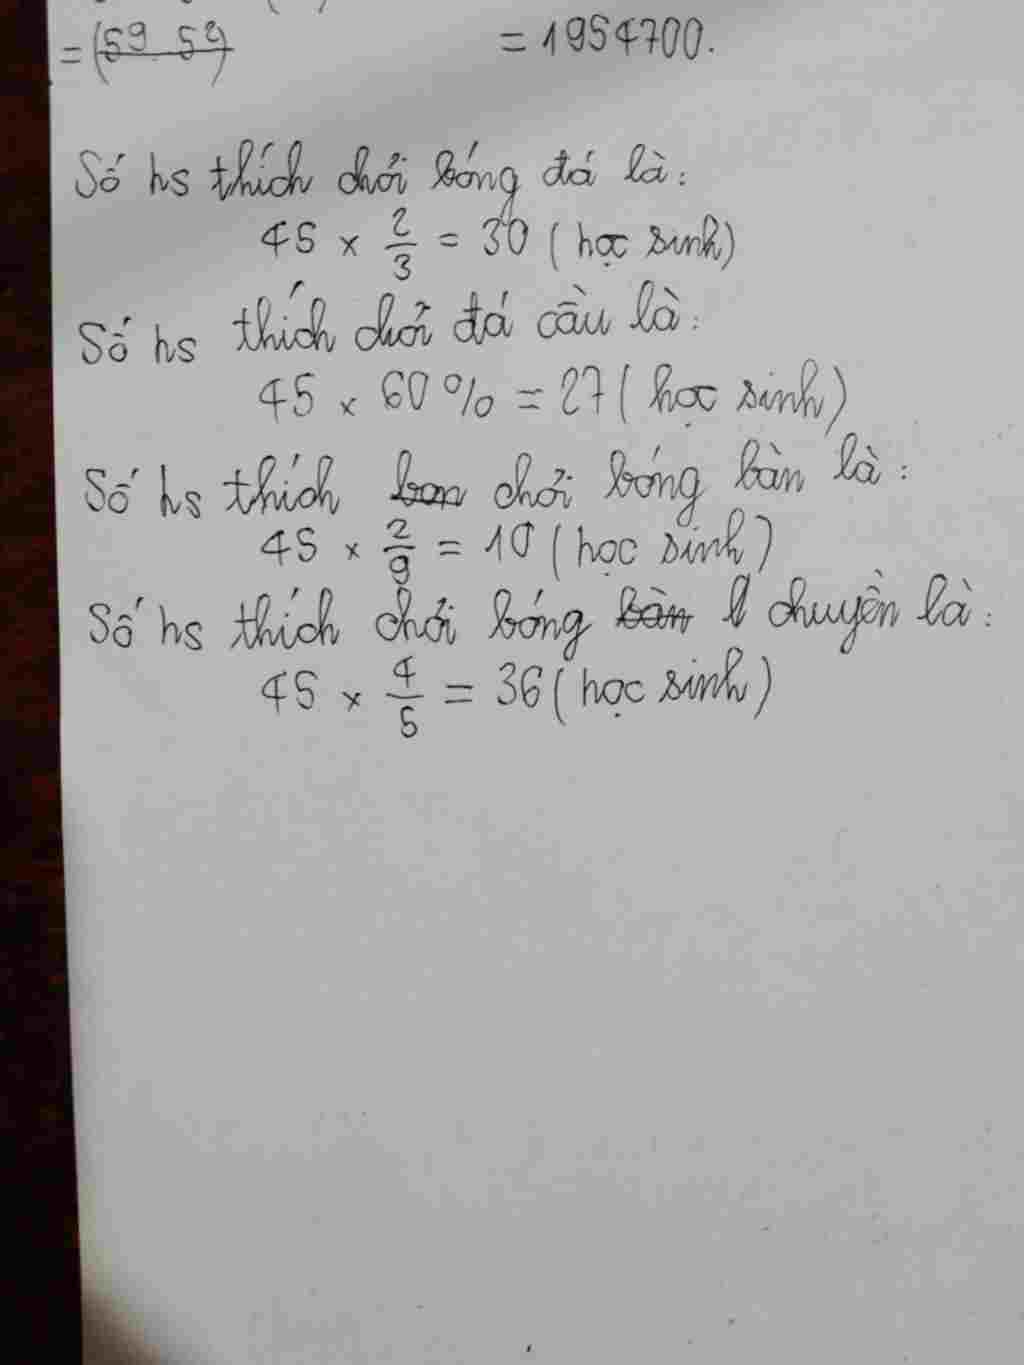 = (59 59)
= 1954700.
Số hs thích chơi bóng đá là:
45 × 2/3 = 30 ( học sinh)
Số hs thích chơi đá cầu là:
45 × 60% = 27 ( học sinh)
Số hs thích ban chơi bóng bàn là:
45 × 2/9 = 10 ( học sinh)
Số hs thích chơi bóng bàn l chuyền là:
45 × 4/5 = 36 ( học sinh)